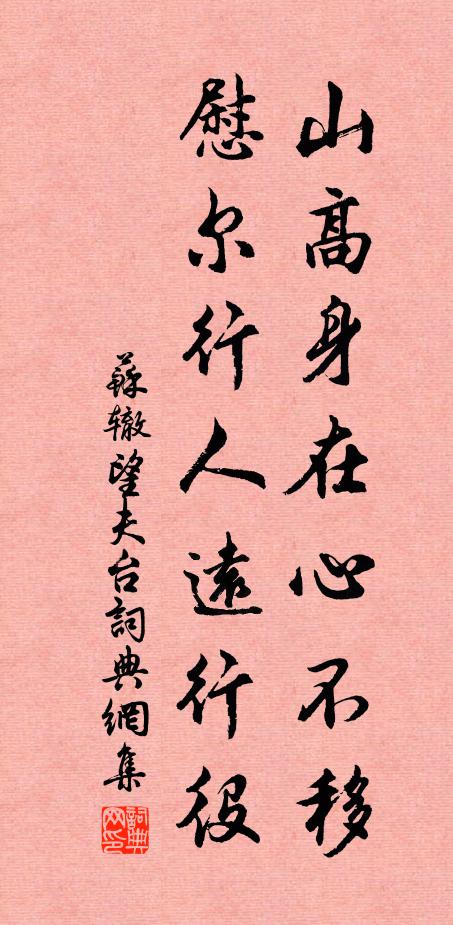 山高身在心不移
慰尔行人遠行役
蘇辙望夫台詞典網集
詞典网印